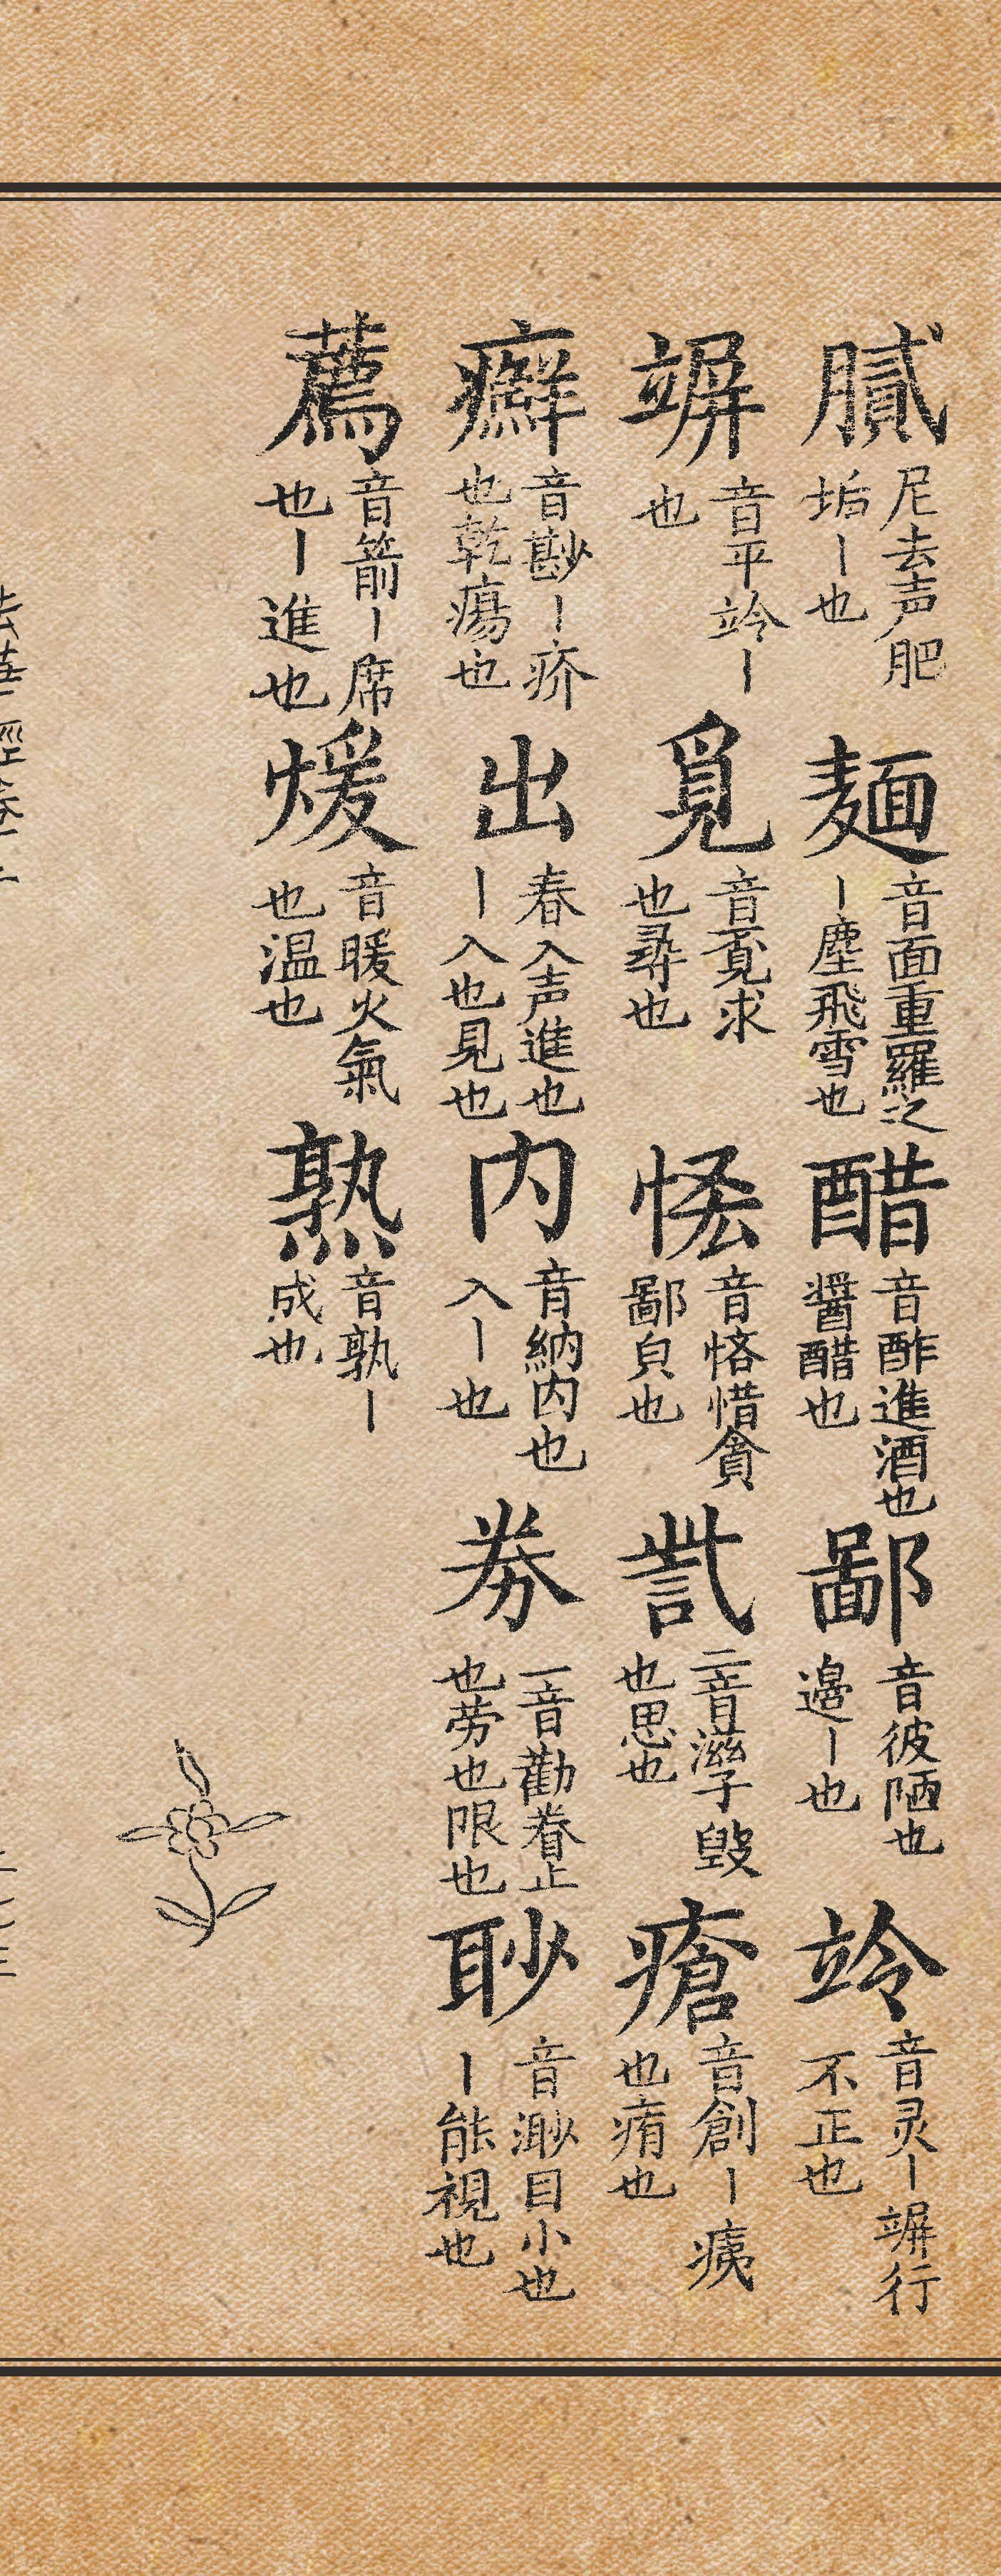 膩 尼去声肥垢丨也 麺 音面重羅之丨塵飛雪也 醋 音酢進酒也醬醋也 鄙 音彼陋也邊丨也 竛 音灵丨竮行不正也
竮 音平竛丨也 覓 音覔求也尋也 恡 音悋惜貪鄙㒵也 訾 二音 毀也思也 瘡 音創丨痍也痏也
癬 音尠丨疥也乾瘍也 出 春入声進也丨入也見也 内 音納内也入丨也 券 一音勸眷止也劵也限也 眇 音渺目小也丨能視也
薦 音箭丨席也丨進也 煖 音暖火氣也温也 熟 音孰丨成也